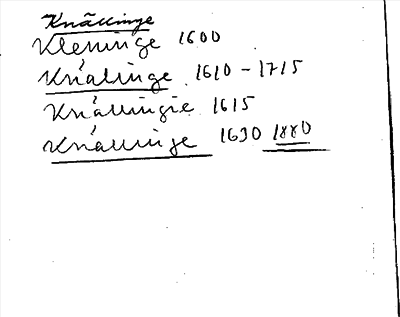 Knällinge
Kleninge 1600
Knalinge 1610-1715
Knällingie 1615
Knällinge 1630 1880